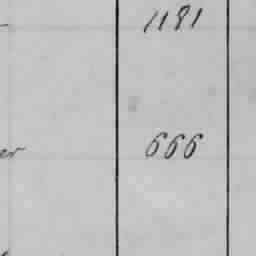 1181
er 666